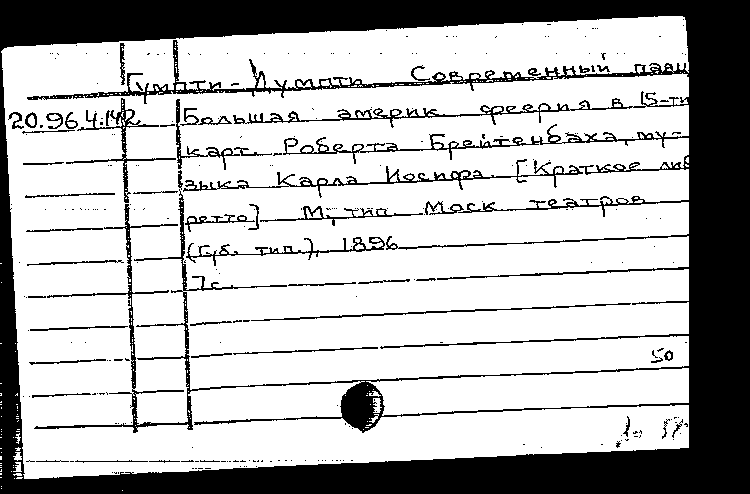 Гумпти-Думпти Современный паяц
20.96.4.142. Большая америк феерия в 15-ти
карт. Роберта Брейтенбаха, му-
зыка Карла Иосифа. [Краткое либ
ретто] М., тип. Моск театров
(б. тип.), 1896
7с.
50